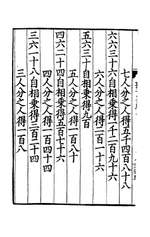 七人分之人得五千四百八十八
六六三十六自相乘得一千二百九十六
六人分之人得二百一十六
五六三十自相乘得九百
五人分之人得一百八十
四六二十四自相乘得五百七十六
四人分之人得一百四十四
三六一十八自相乘得三百二十四
三人分之人得一百八